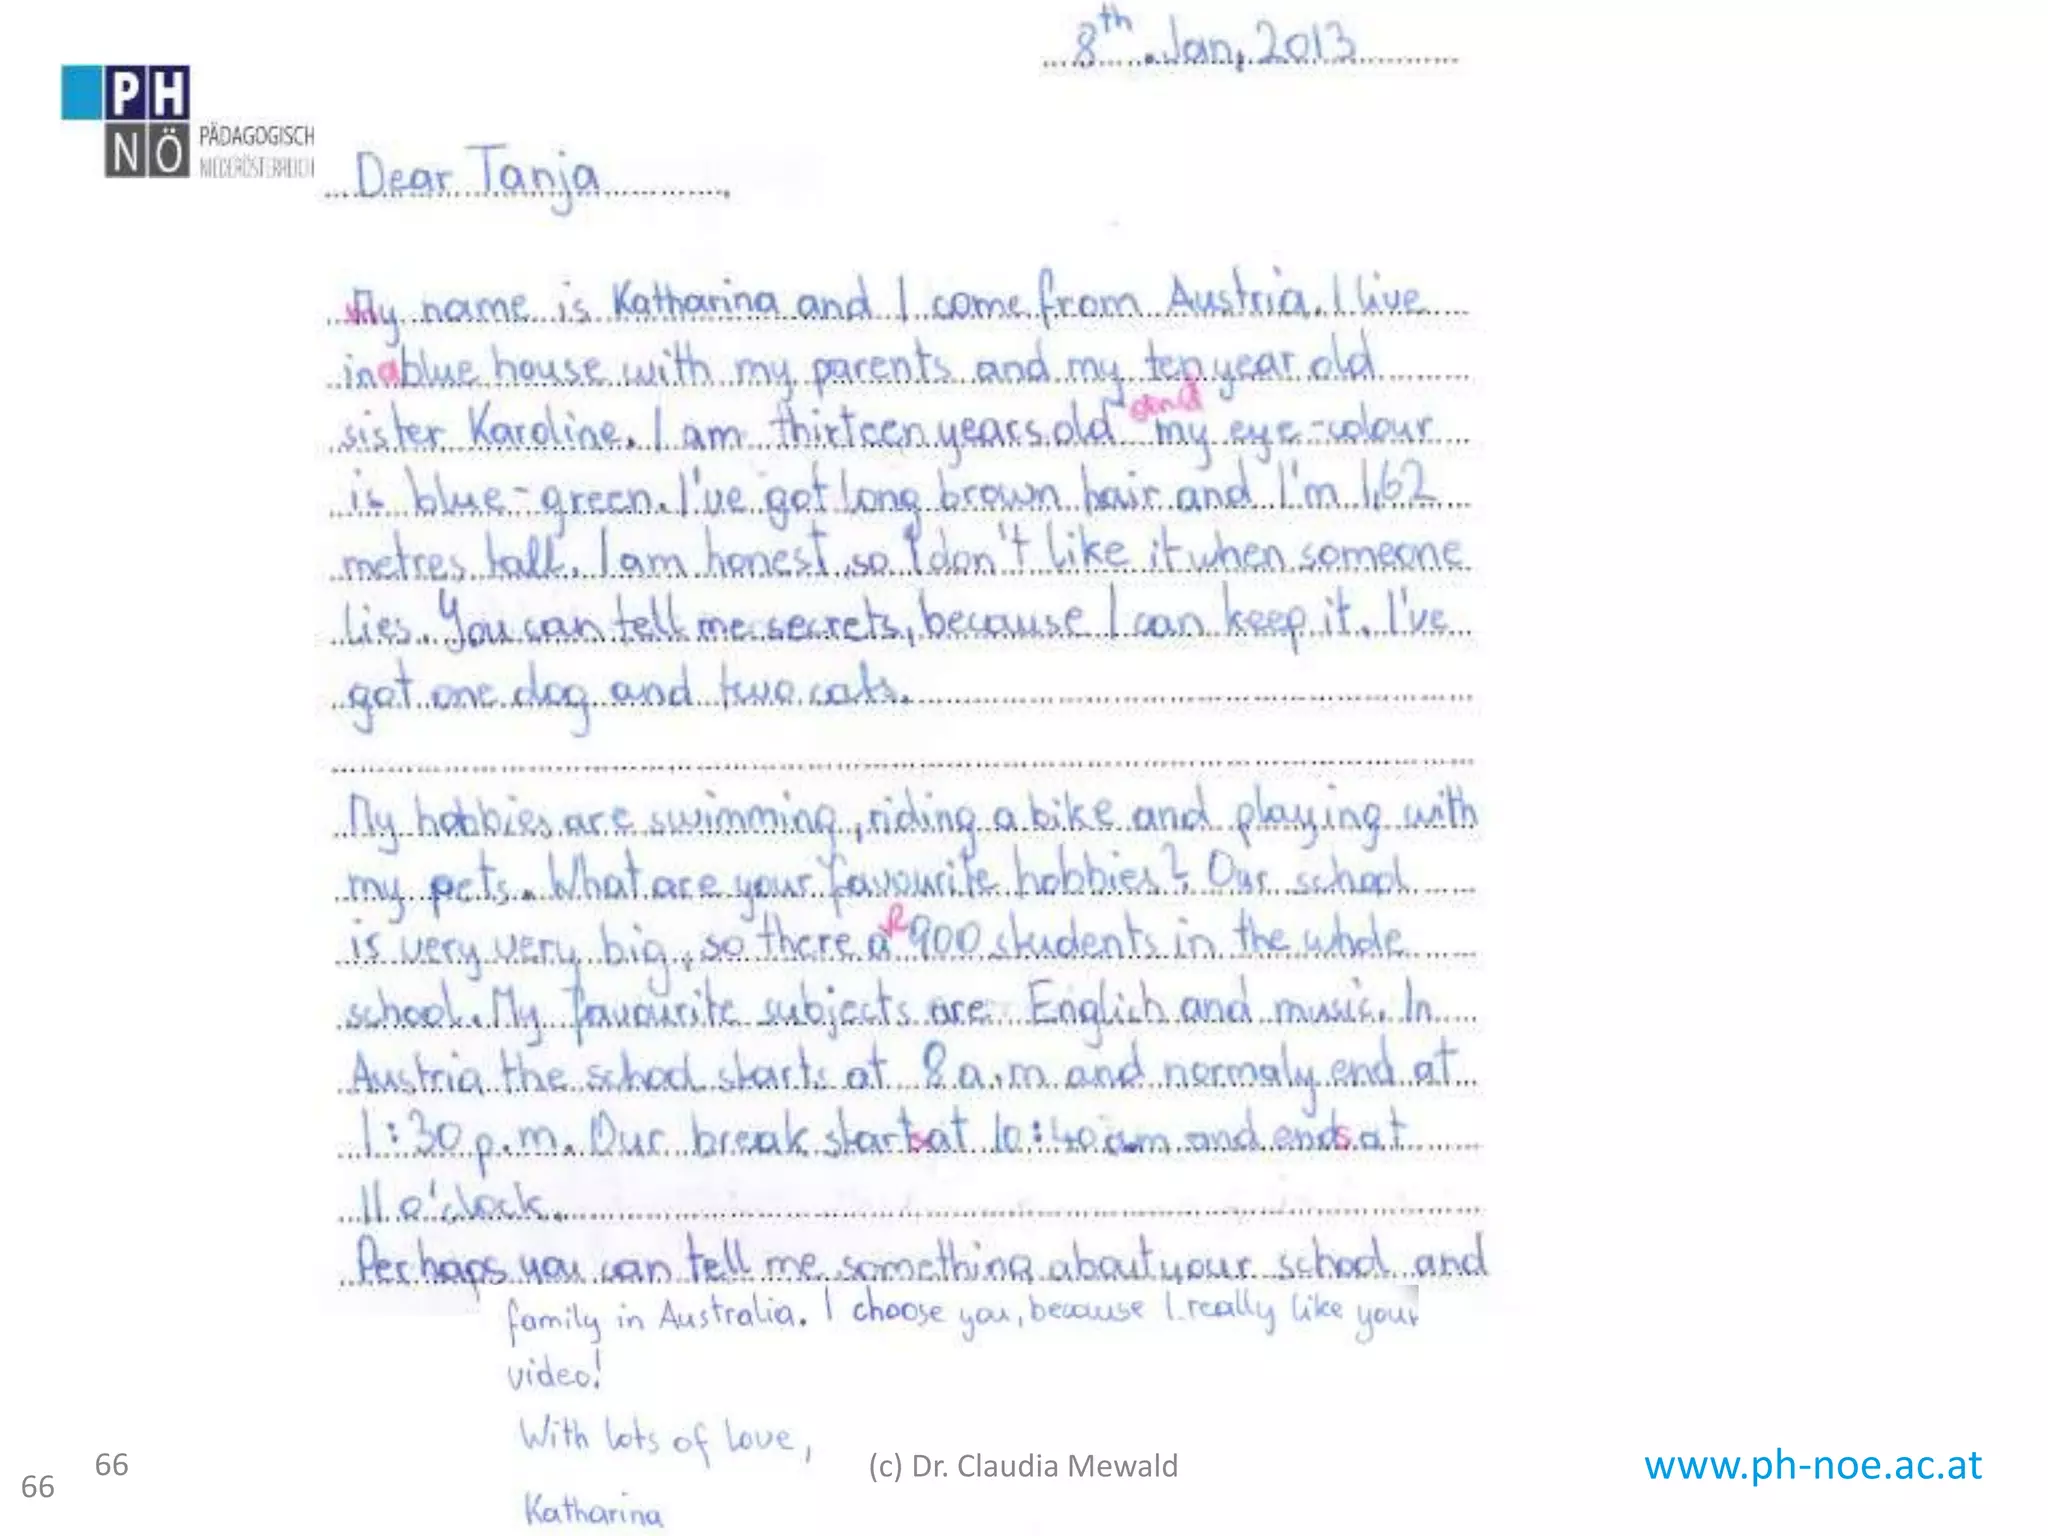 8th. Jan, 2013
PH
NÖ
PÄDAGOGISCH
NIEDERÖSTERREICH
Dear Tanja
My name is Katharina and I come from Austria. I live
in a blue house with my parents and my ten year old
sister Karoline. I am thirteen years old and my eye-colour
is blue-green. I've got long brown hair and I'm 1,62
metres tall. I am honest, so I don't like it when someone
lies. You can tell me secrets, because I can keep it. I've
got one dog and two cats.
My hobbies are swimming, riding a bike and playing with
my pets. What are your favourite hobbies? Our school
is very very big, so there are 900 students in the whole
school. My favourite subjects are English and music. In
Austria the school starts at 8 a.m and normaly end at
1:30 p.m. Our break starts at 10:40 a.m and ends at
11 o'clock.
Perhaps you can tell me something about your school and
family in Australia. I choose you, because I really like your
video!
With lots of love,
Katharina
66
66
(c) Dr. Claudia Mewald
www.ph-noe.ac.at